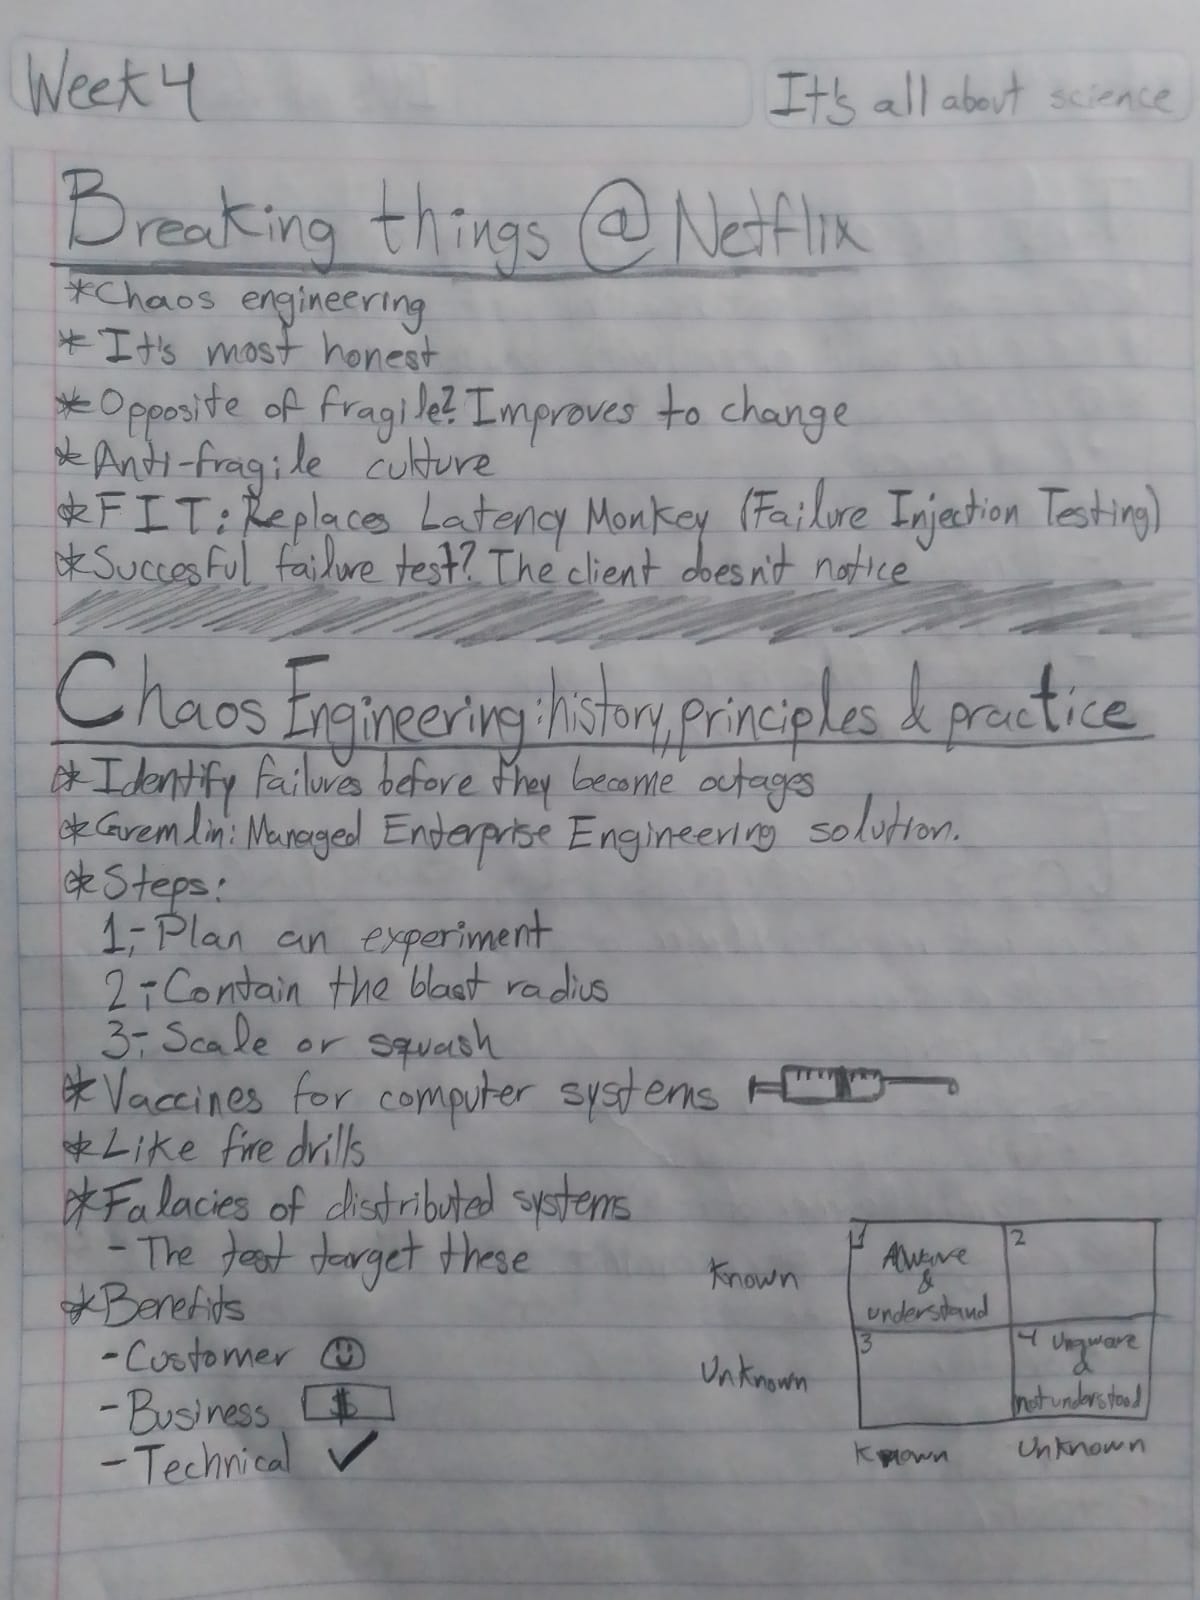 Week 4
It's all about science
Breaking things @ Netflix
*Chaos engineering
* It's most honest
*Opposite of fragile? Improves to change
*Anti-fragile culture
*FIT: Replaces Latency Monkey (Failure Injection Testing)
*Succesful failure test? The client doesn't notice
Chaos Engineering: history, principles & practice
*Identify failures before they become outages
*Gremlin: Managed Enterprise Engineering solution.
*Steps:
1.- Plan an experiment
2.- Contain the blast radius
3.- Scale or squash
*Vaccines for computer systems
*Like fire drills
*Falacies of distributed systems
- The test target these
*Benefits
- Customer
- Business $
- Technical ✓
Known
Unknown
1
Aware
&
understand
2
3
4 Unaware
&
not understood
Known Unknown